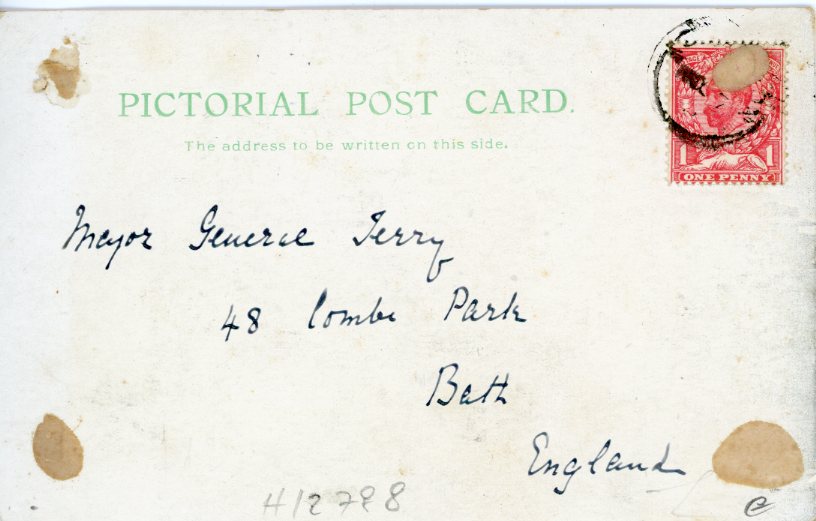 PICTORIAL POST CARD.
The address to be written on this side.
1 1
ONE PENNY
Major General Terry
48 Combe Park
Bath
England
H12798
e